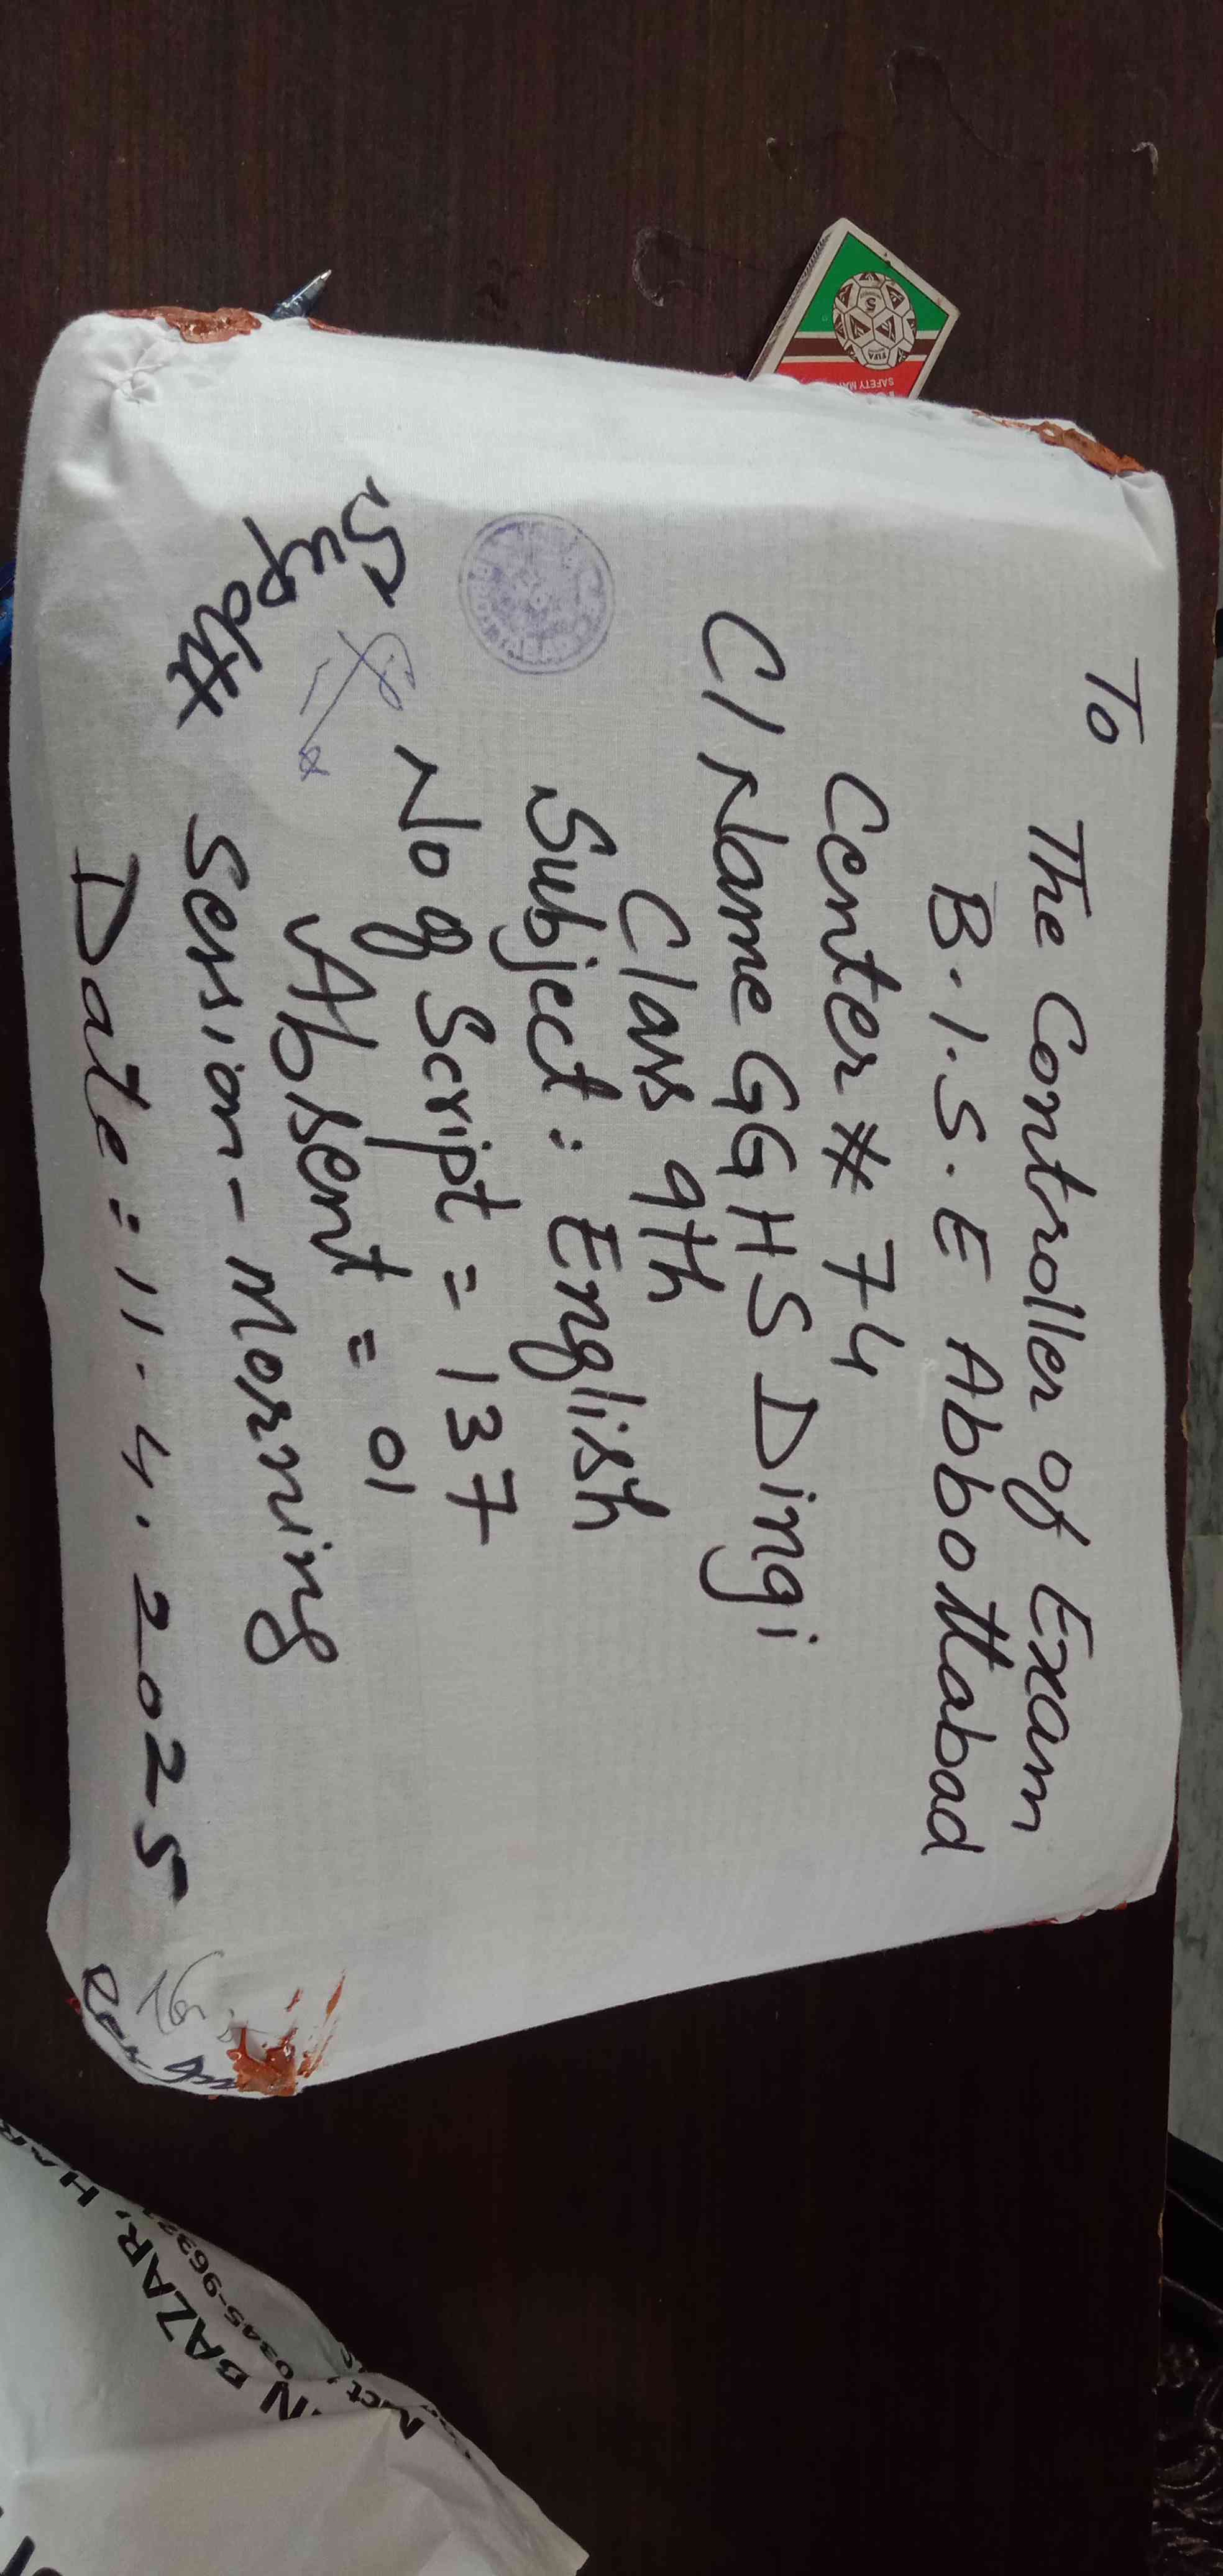 To
The Controller of Exam
B.I.S.E Abbottabad
Center # 74
C/Name GGHS Dingi
Class 9th
Subject: English
No of Script = 137
Absent = 01
Session - Morning
Date: 11.4.2025
Supdtt
FIFA
SAFETY MA
IN BAZAR, HAR
0345-963